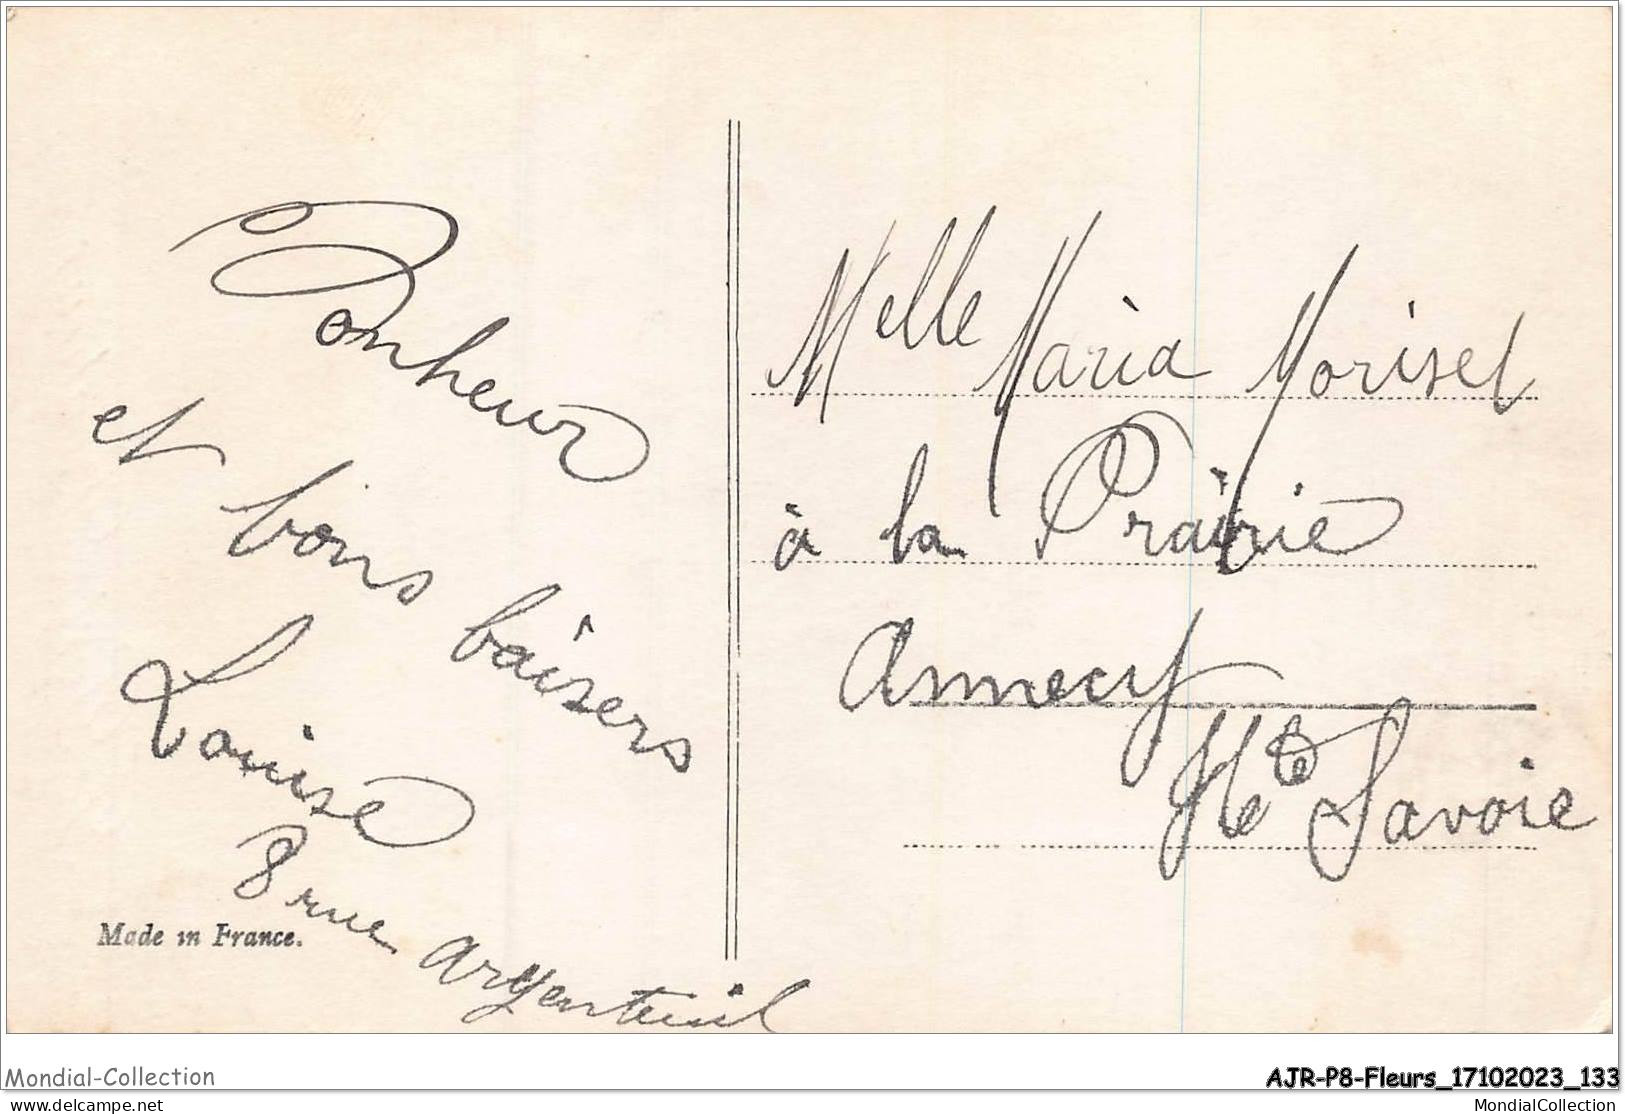 Bonheur
et bons baisers
Louise
8 rue Argenteuil
Made in France.
Melle Maria Morisel
à la Prairie
Annecy
Hte Savoie
Mondial-Collection
AJR-P8-Fleurs_17102023_133
www.delcampe.net
MondialCollection